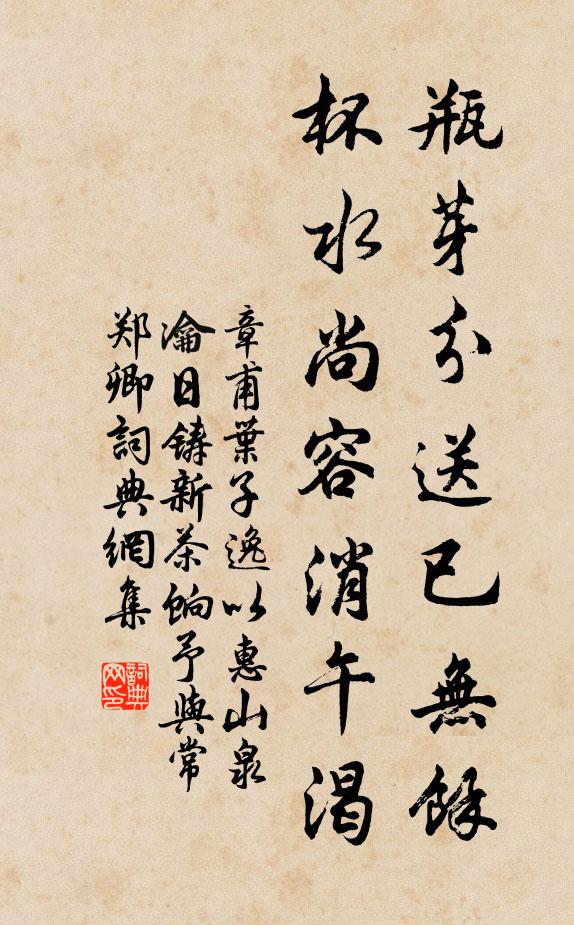 瓶芽分送已無餘
杯水尚容消午渴
章甫葉子逸以惠山泉
瀹日鑄新茶餉予與常
郑卿詞典網集
詞典
网印